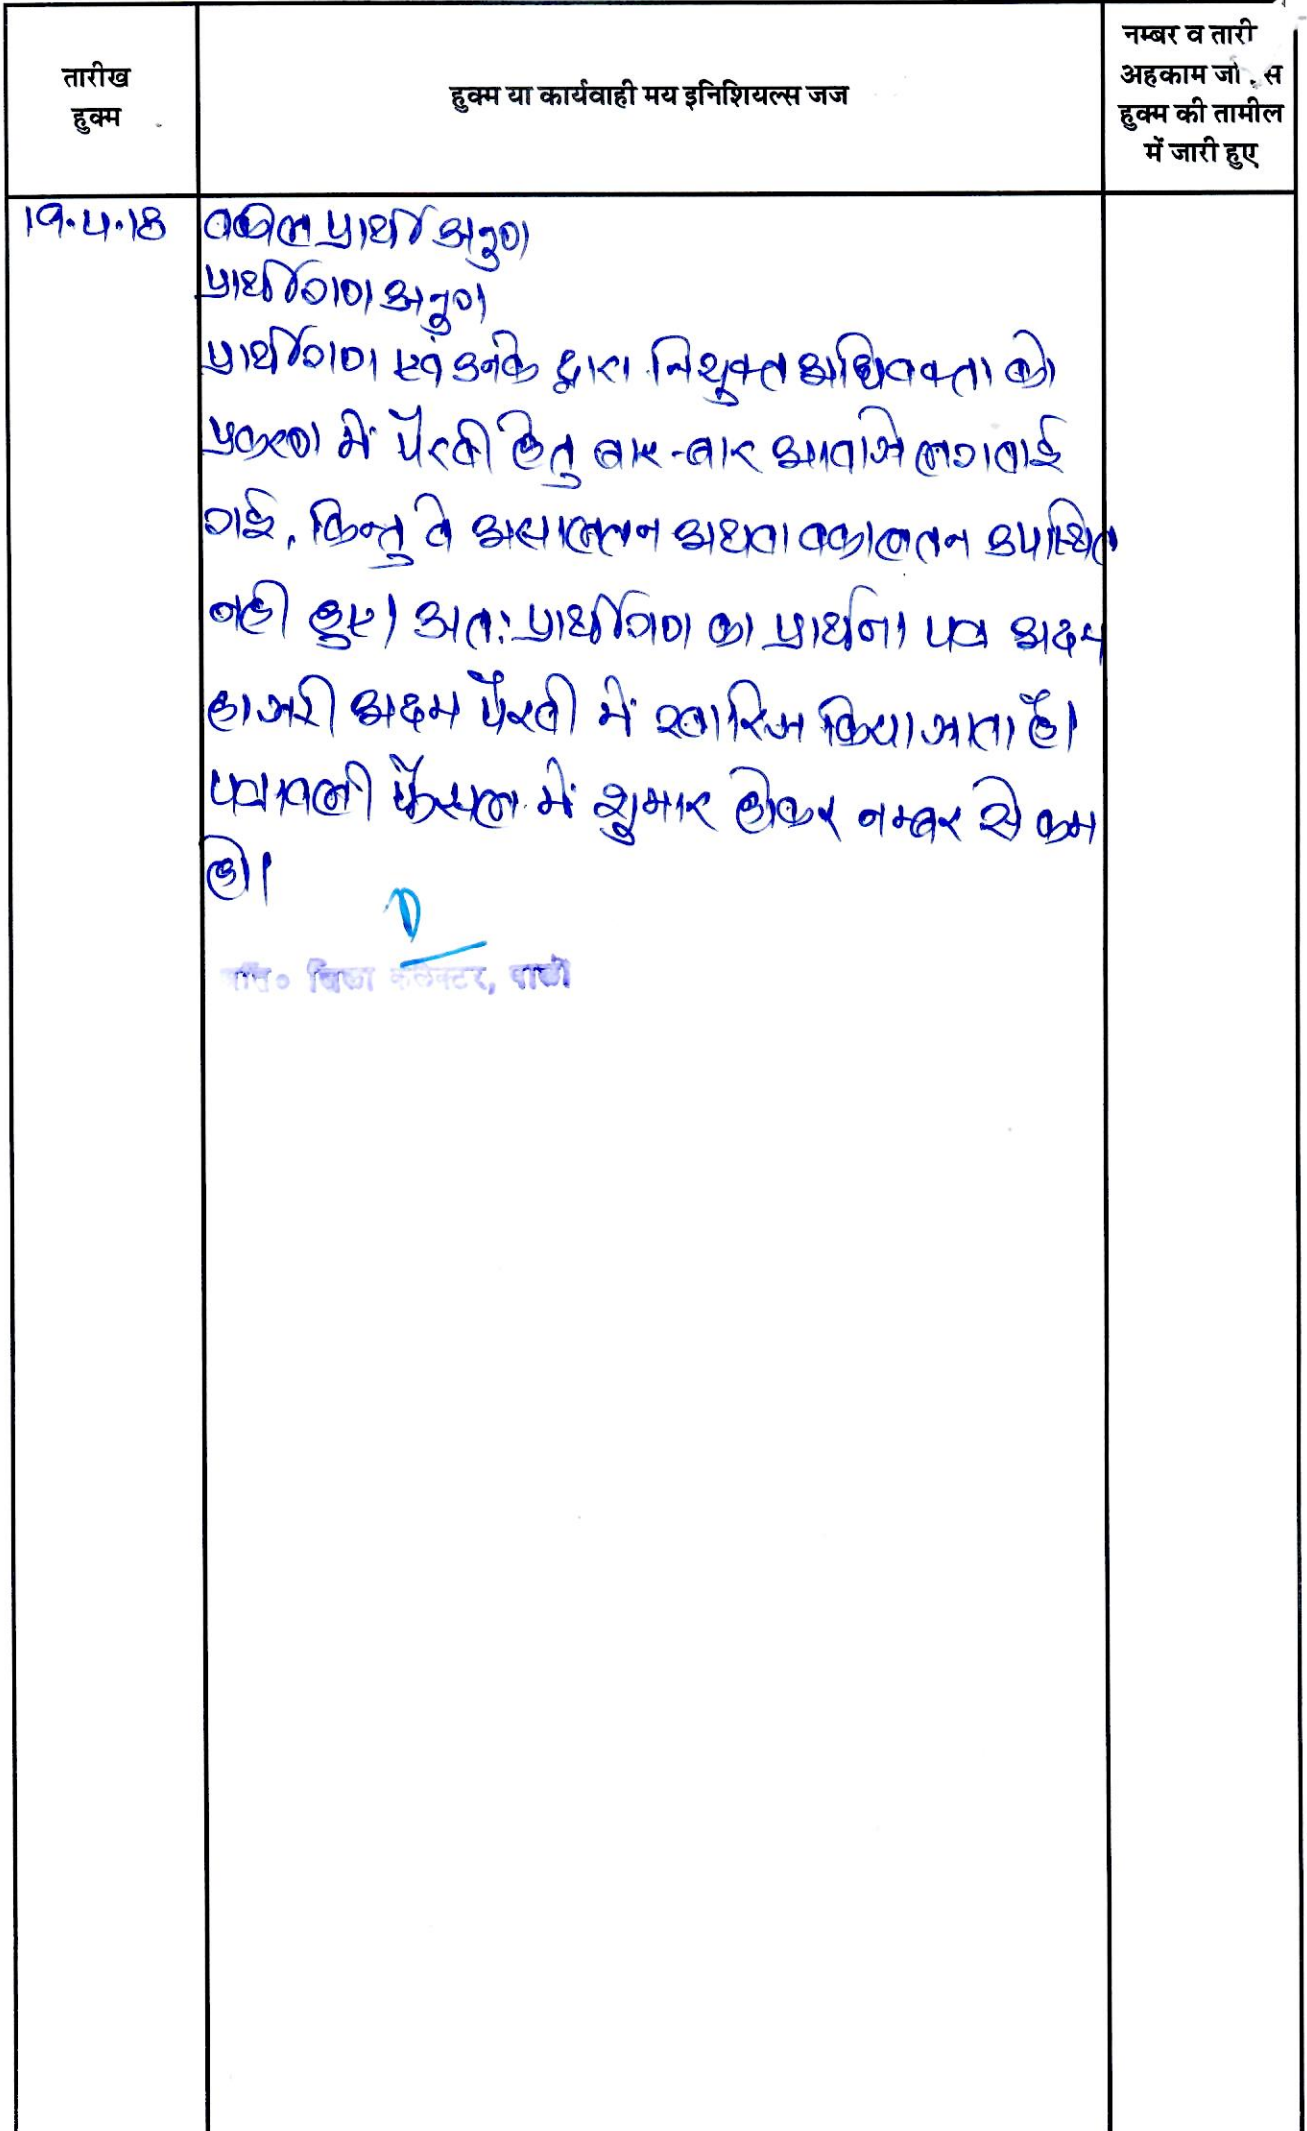 तारीख
हुक्म
हुक्म या कार्यवाही मय इनिशियल्स जज
नम्बर व तारी
अहकाम जो स
हुक्म की तामील
में जारी हुए
19.4.18
वकील प्रार्थी अनु०
प्रार्थीगण अनु०
प्रार्थीगण एवं उनके द्वारा नियुक्त अधिवक्ता को
प्रकरण में पैरवी हेतु बार-बार आवाजे लगवाई
गई, किन्तु वे असालतन अथवा वकालतन उपस्थित
नही हुए। अतः प्रार्थीगण का प्रार्थना पत्र अदम
हाजरी अदम पैरवी में खारिज किया जाता है।
पत्रावली फैसल में शुमार होकर नम्बर से कम
हो।
अति० जिला कलेक्टर, पाली